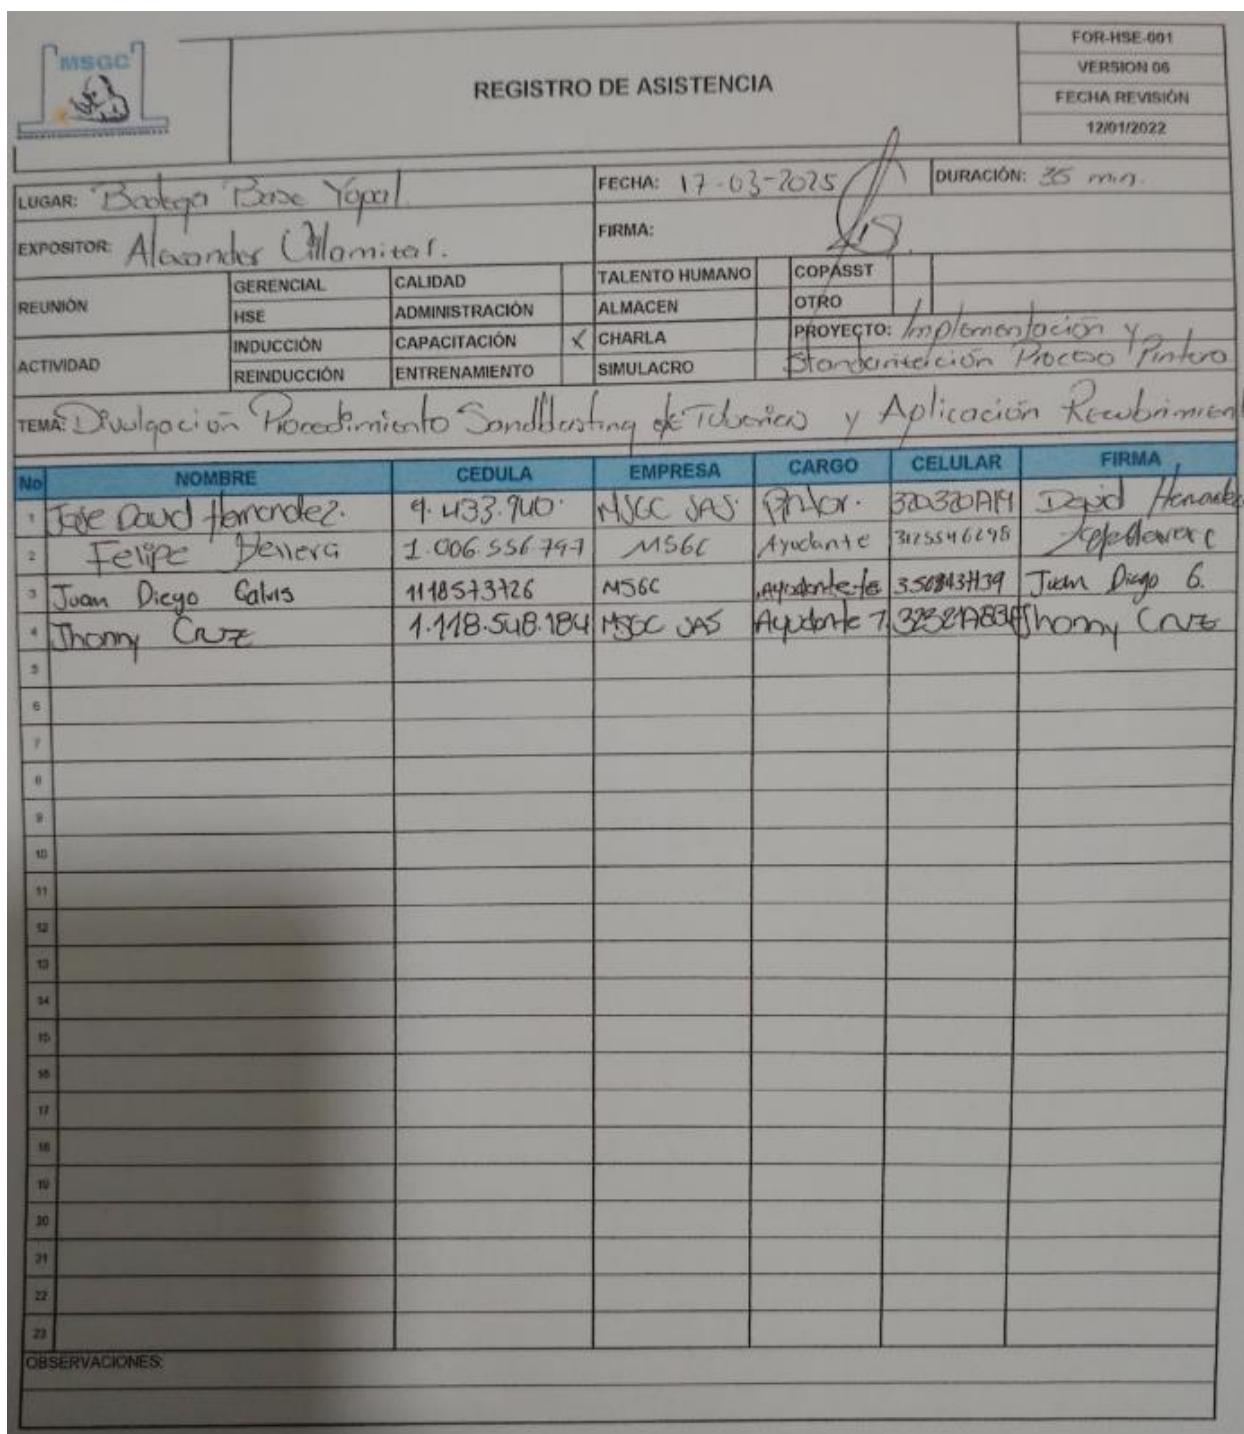 MSGC
REGISTRO DE ASISTENCIA
FOR-HSE-001
VERSION 06
FECHA REVISIÓN
12/01/2022
LUGAR: Bodega Base Yopal.
FECHA: 17-03-2025
DURACIÓN: 35 min.
EXPOSITOR: Alexander Villamizar.
FIRMA:
REUNIÓN
GERENCIAL
CALIDAD
TALENTO HUMANO
COPASST
HSE
ADMINISTRACIÓN
ALMACEN
OTRO
ACTIVIDAD
INDUCCIÓN
CAPACITACIÓN X
CHARLA
PROYECTO: Implementación y
REINDUCCIÓN
ENTRENAMIENTO
SIMULACRO
Standarización Proceso Pintura
TEMA: Divulgación Procedimiento Sandblasting de Tuberias y Aplicación Recubrimient
No NOMBRE CEDULA EMPRESA CARGO CELULAR FIRMA
1 Jose David Hernandez. 9.433.940. MSGC SAS. Pintor. David Hernandez
2 Felipe 1.006.556.797 MSGC Ayudante 3125546298
3 Juan Diego Galvis 1118573726 MSGC Ayudante Juan Diego G.
4 Jhonny Cruz 1.118.548.184 MSGC SAS Ayudante Jhonny Cruz
5
6
7
8
9
10
11
12
13
14
15
16
17
18
19
20
21
22
23
OBSERVACIONES: